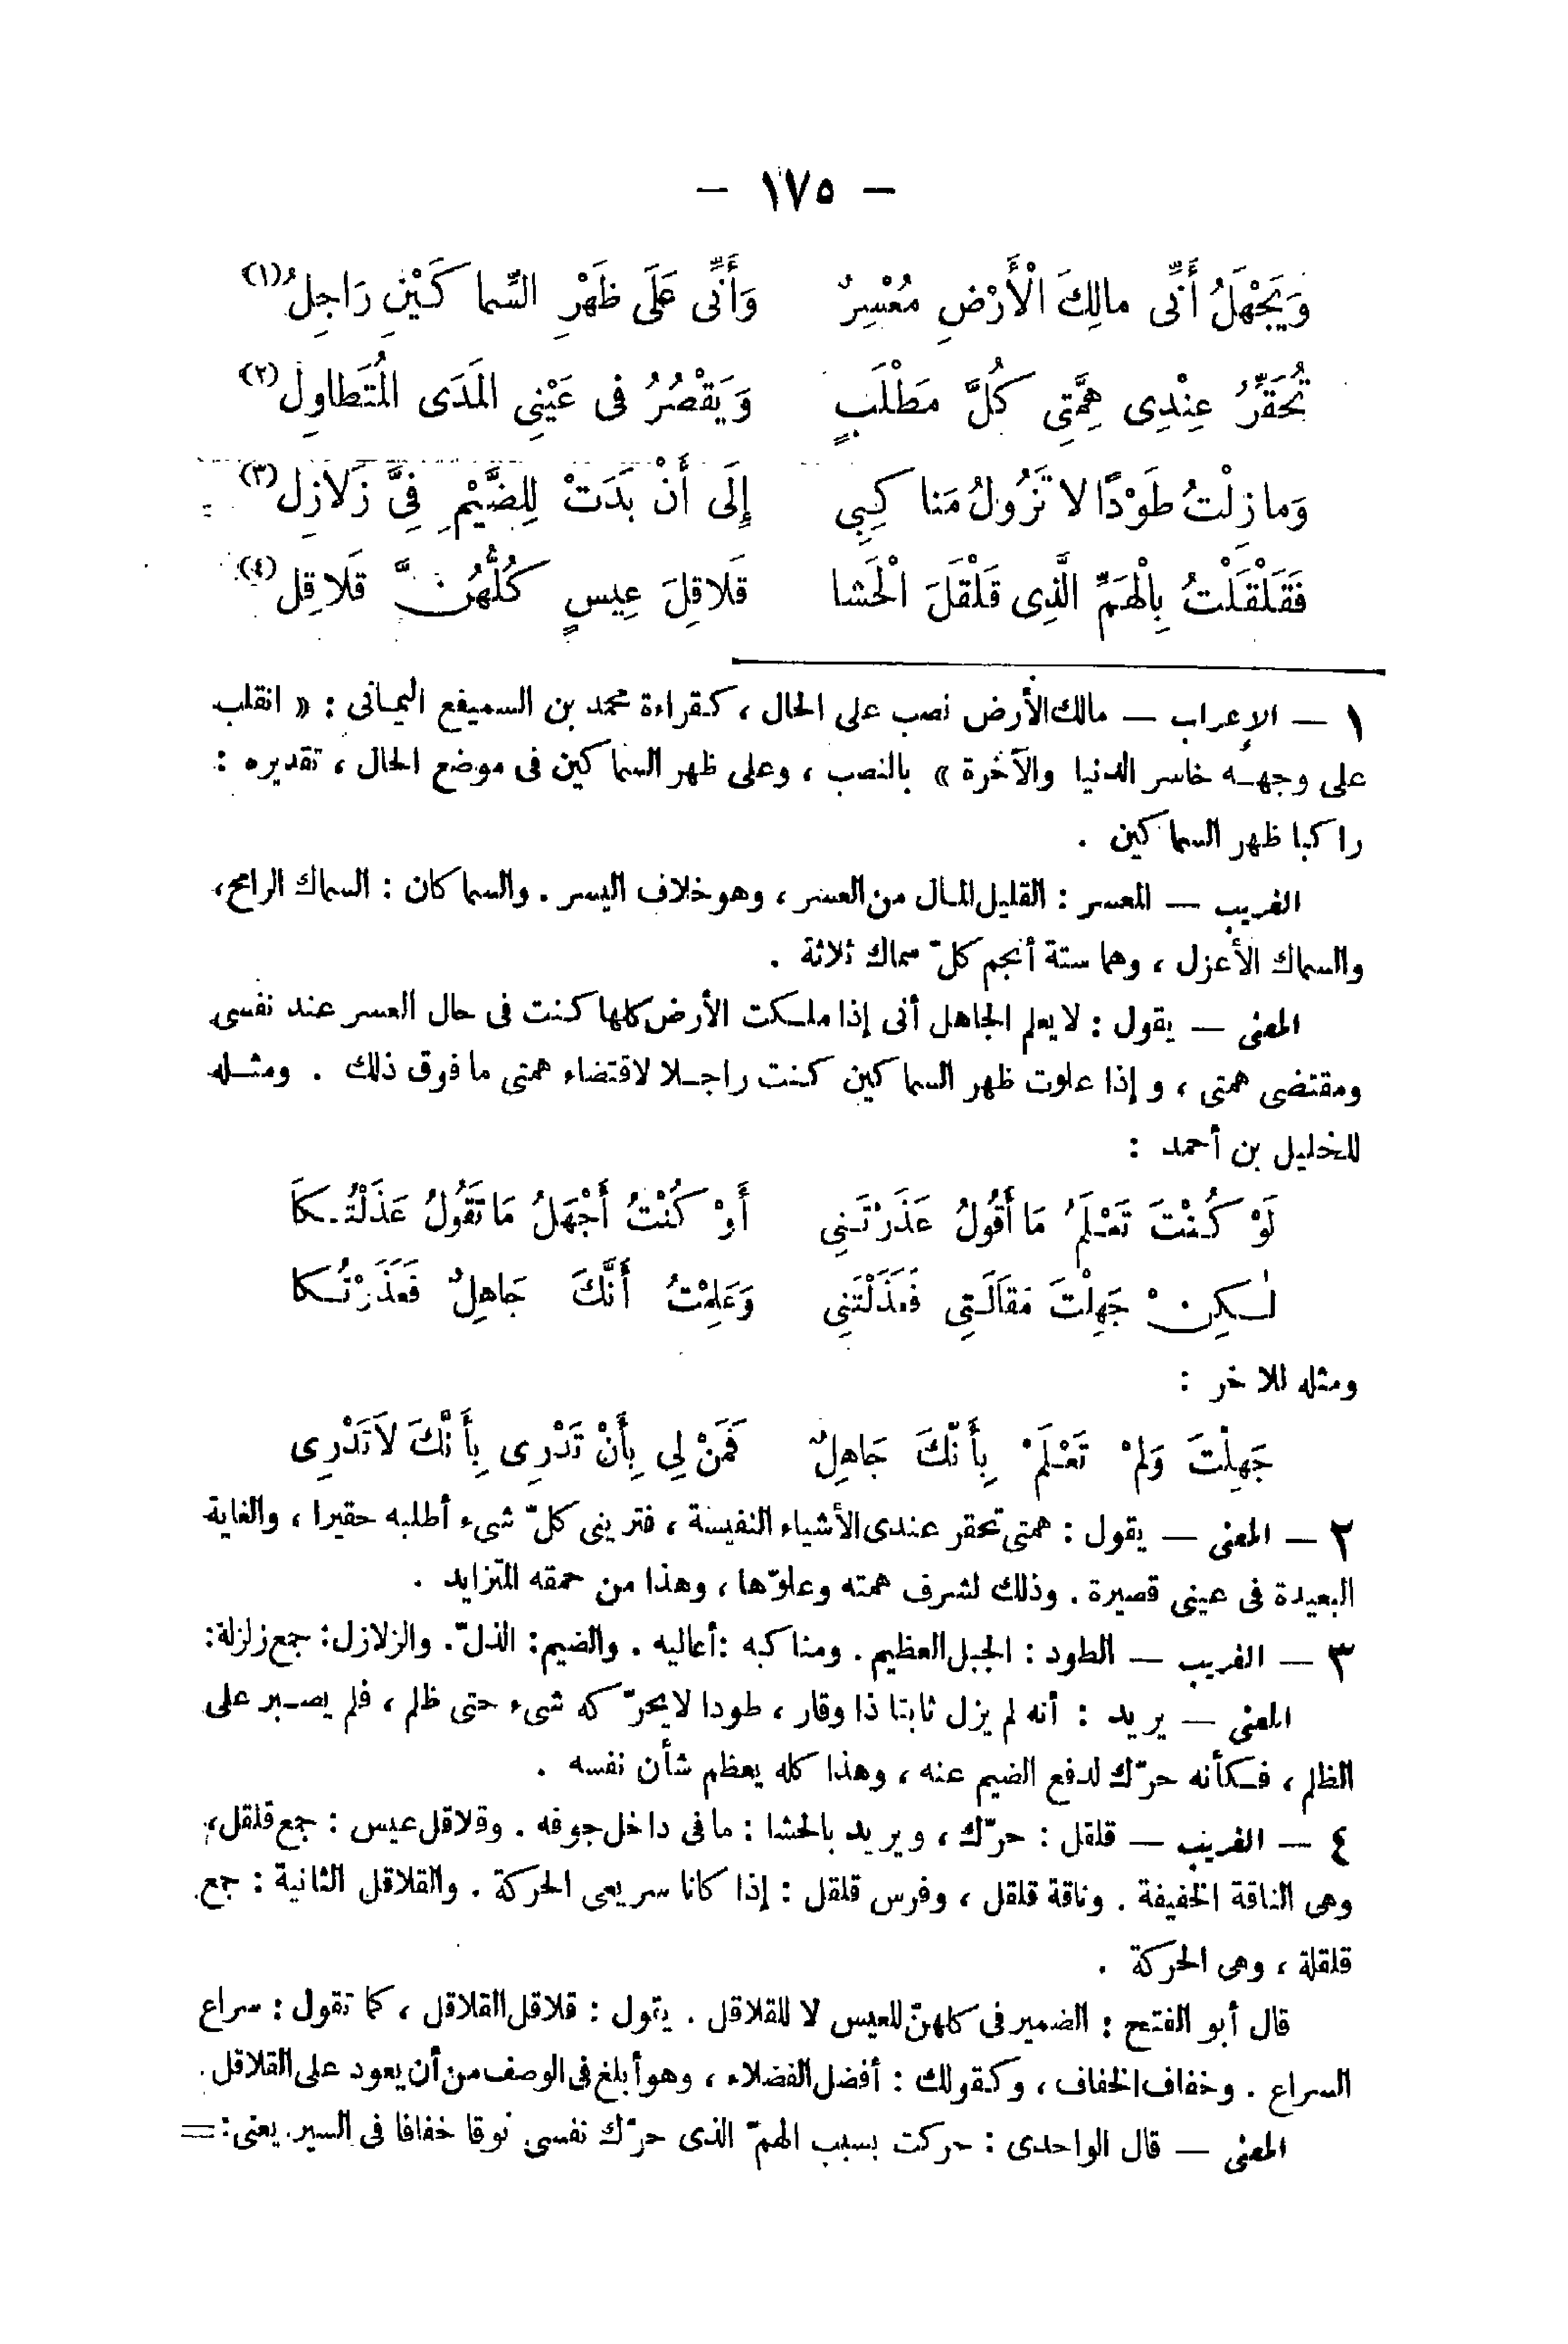 — ١٧٥ —
وَيَجْهَلُ أَنِّى مالِكَ الْأَرْضِ مُعْسِرٌ وَأَنِّى عَلَى ظَهْرِ السِّماكَيْنِ رَاجِلُ (١)
تُحَقِّرُ عِنْدِى هِمَّتِى كُلَّ مَطْلَبٍ وَيَقْصُرُ فى عَيْنِى المَدَى المُتَطاوِلُ (٢)
وَمازِلْتُ طَوْدًا لا تَزُولُ مَناكِبِى إِلَى أَنْ بَدَتْ لِلضَّيْمِ فِىَّ زَلازِلُ (٣)
فَقَلْقَلْتُ بِالْهَمِّ الَّذِى قَلْقَلَ الْحَشا قَلاقِلَ عِيسٍ كُلُّهُنَّ قَلاقِلُ (٤)
١ — الإعراب — مالك الأرض نصب على الحال ، كقراءة محمد بن السميفع اليمانى : « انقلب
على وجهه خاسر الدنيا والآخرة » بالنصب ، وعلى ظهر السماكين فى موضع الحال ، تقديره :
راكبا ظهر السماكين .
الغريب — المعسر : القليل المال من العسر ، وهو خلاف اليسر . والسماكان : السماك الرامح ،
والسماك الأعزل ، وهما ستة أنجم كلّ سماك ثلاثة .
المعنى — يقول : لا يعلم الجاهل أنى إذا ملكت الأرض كلها كنت فى حال العسر عند نفسى
ومقتضى همتى ، وإذا علوت ظهر السماكين كنت راجلا لاقتضاء همتى ما فوق ذلك . ومثله
للخليل بن أحمد :
لَوْ كُنْتَ تَعْلَمُ مَا أَقُولُ عَذَرْتَنِى أَوْ كُنْتُ أَجْهَلُ مَا تَقُولُ عَذَلْتُكَا
لٰكِنْ جَهِلْتَ مَقَالَتِى فَعَذَلْتَنِى وَعَلِمْتُ أَنَّكَ جَاهِلٌ فَعَذَرْتُكا
ومثله للآخر :
جَهِلْتَ وَلَمْ تَعْلَمْ بِأَنَّكَ جَاهِلٌ فَمَنْ لِى بِأَنْ تَدْرِى بِأَنَّكَ لَا تَدْرِى
٢ — المعنى — يقول : همتى تحقر عندى الأشياء النفيسة ، فترينى كلّ شىء أطلبه حقيرا ، والغاية
البعيدة فى عينى قصيرة . وذلك لشرف همته وعلوّها ، وهذا من حمقه المتزايد .
٣ — الغريب — الطود : الجبل العظيم . ومناكبه : أعاليه . والضيم : الذلّ . والزلازل : جمع زلزلة :
المعنى — يريد : أنه لم يزل ثابتا ذا وقار ، طودا لا يحرّكه شىء حتى ظلم ، فلم يصبر على
الظلم ، فكأنه حرّك لدفع الضيم عنه ، وهذا كله يعظم شأن نفسه .
٤ — الغريب — قلقل : حرّك ، ويريد بالحشا : ما فى داخل جوفه . وقلاقل عيس : جمع قلقل ،
وهى الناقة الخفيفة . وناقة قلقل ، وفرس قلقل : إذا كانا سريعى الحركة . والقلاقل الثانية : جمع
قلقلة ، وهى الحركة .
قال أبو الفتح : الضمير فى كلهنّ للعيس لا للقلاقل . يقول : قلاقل القلاقل ، كما تقول : سراع
السراع . وخفاف الخفاف ، وكقولك : أفضل الفضلاء ، وهو أبلغ فى الوصف من أن يعود على القلاقل .
المعنى — قال الواحدى : حركت بسبب الهمّ الذى حرّك نفسى نوقا خفافا فى السير . يعنى : =